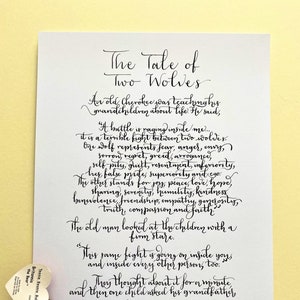 The Tale of
Two Wolves
An old Cherokee was teaching his
grandchildren about life. He said,
"A battle is raging inside me...
it is a terrible fight between two wolves.
One wolf represents fear, anger, envy,
sorrow, regret, greed, arrogance,
self pity, guilt, resentment, inferiority,
lies, false pride, superiority and ego.
The other stands for joy, peace, love, hope,
sharing, serenity, humility, kindness,
benevolence, friendship, empathy, generosity,
truth, compassion and faith"
The old man looked at the children with a
firm stare.
"This same fight is going on inside you,
and inside every other person, too."
They thought about it for a minute
and then one child asked his grandfather,